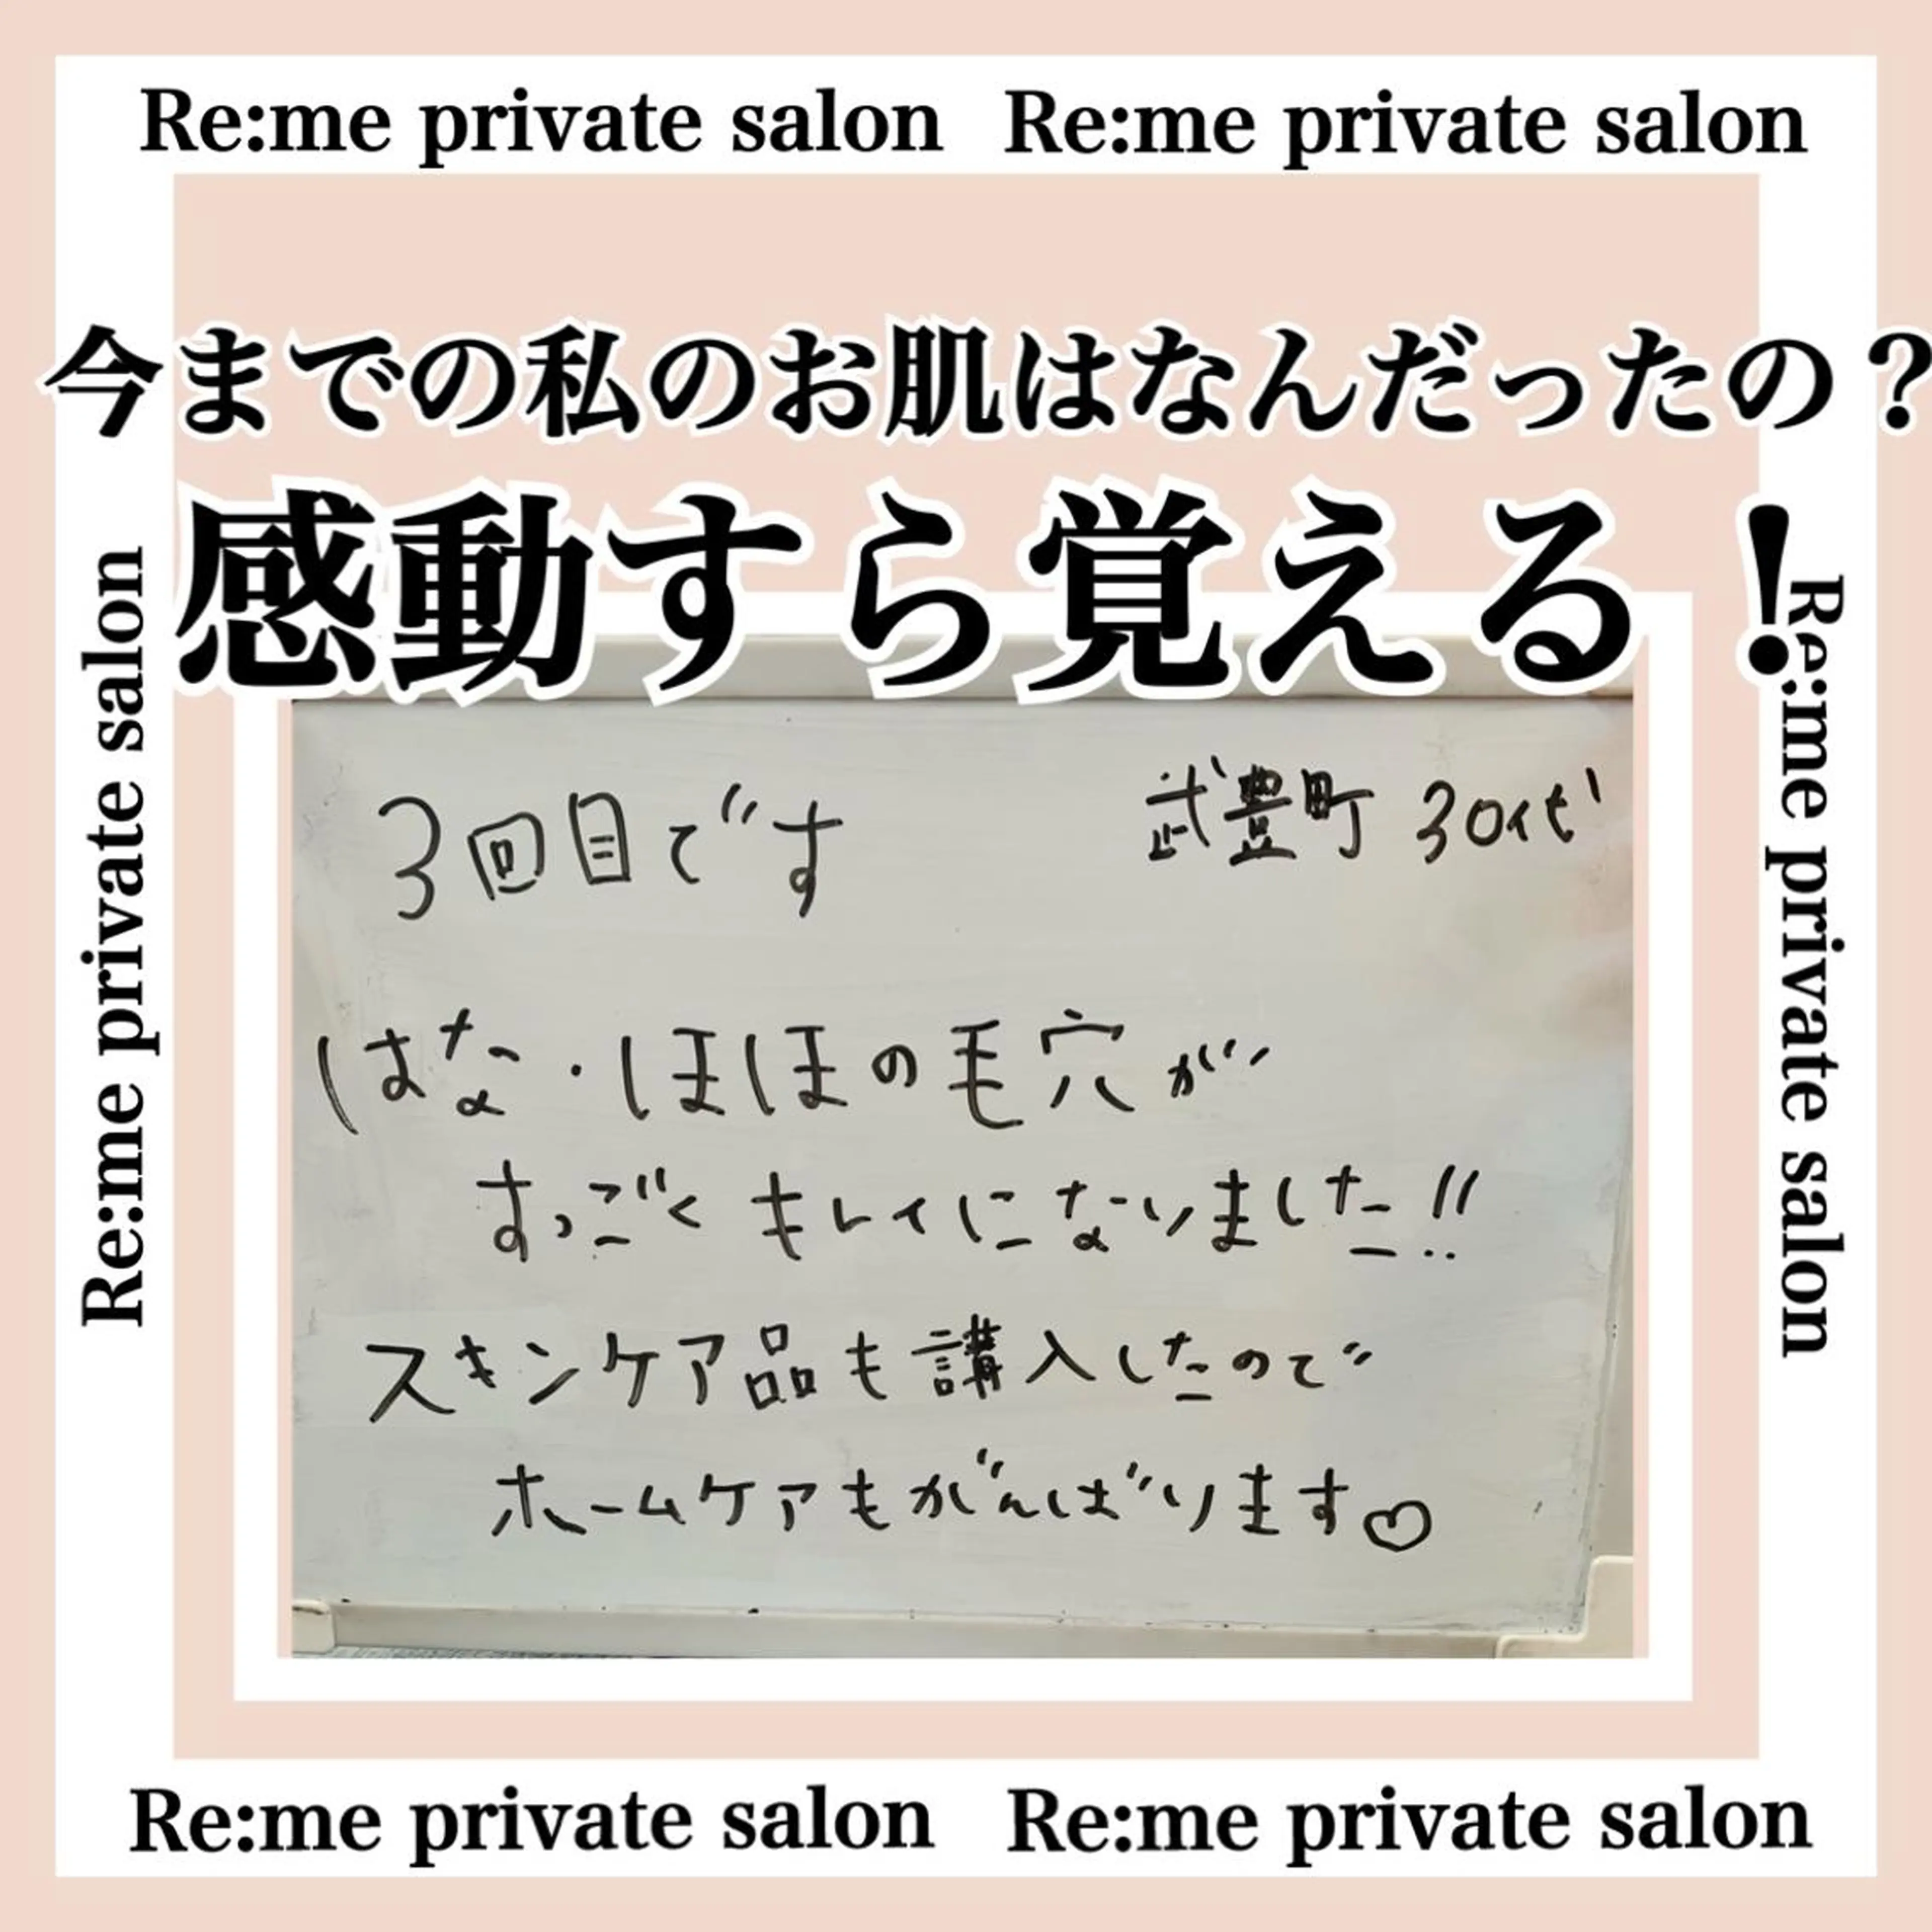 Re:me private salon Re:me private salon
今までの私のお肌はなんだったの？
感動すら覚える！
Re:me private salon
Re:me private salon
3回目です 武豊町 30代
はな・ほほの毛穴が
すっごくキレイになりました!!
スキンケア品も講入したので
ホームケアもがんばります♡
Re:me private salon Re:me private salon